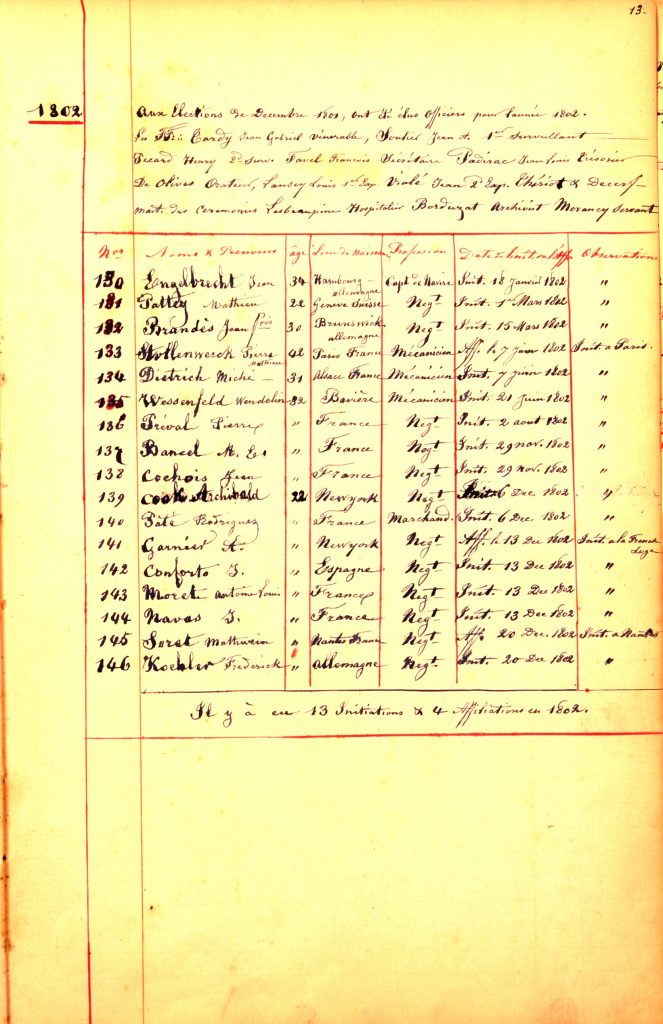 13.
1802
Aux Elections de Decembre 1801, ont été élus Officiers pour l'année 1802.
Les FF∴ Tardy Jean Gabriel Vénérable, Soulier Jean A. 1er Surveillant
Sicard Henry 2d Surv. Favel François Sécrétaire Padirac Jean Louis Trésorier
De Olives Orateur, Lansey Louis 1er Exp. Violé Jean 2d Exp. Thériot &
mait. des Ceremonies Lesbeaupine Hospitalier Borduzat Archivist Morancy Servant
Nos Noms & Prenoms âge Lieu de Naissan Profession Date de Init ou Aff Observations
130 Engelbrecht Jean 34 Hambourg allemagne Capt de Navire Init. 18 Janvil 1802 "
131 Pattey Mathieu 22 Geneve Suisse Negt Init. 1er Mars 1802 "
132 Brandès Jean fois 30 Brunswick allemagne Negt Init. 15 Mars 1802 "
133 Hollenwerck Pierre Mathieu 42 Paris France Mécanicien Aff. le 7 juin 1802 Init. a Paris.
134 Dietrich Michel 31 Alsace France Mécanicien Init. 7 juin 1802 "
135 Wessenfeld Wendelin 32 Bavière Mécanicien Init. 21 Juin 1802 "
136 Préval Pierre " France Negt Init. 2 aout 1802 "
137 Bancel M. L. " France Negt Init. 29 nov. 1802 "
138 Cochois Jean " France Negt Init. 29 nov. 1802 "
139 Cook Archibald 22 Newyork Negt Init. 6 Dec 1802 "
140 Pâté Rodriguez " France Marchand. Init. 6 Dec 1802 "
141 Garnier A. " Newyork Negt Aff. le 13 Dec 1802 Init. a la Franch Loge
142 Conforto J. " Espagne Negt Init. 13 Dec 1802 "
143 Moret Antoine Louis " France Negt Init. 13 Dec 1802 "
144 Navas J. " France Negt Init. 13 Dec 1802 "
145 Soret Mathurin " Nantes France Negt Aff. 20 Dec. 1802 Init. a Nantes
146 Koehler Frederick " allemagne Negt Init. 20 Dec 1802 "
Il y à eu 13 Initiations & 4 Affiliations en 1802.